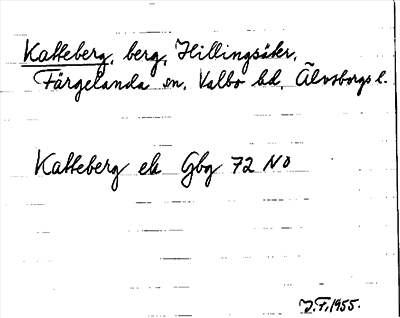 Katteberg, berg, Hillingsäter,
Färgelanda sn, Valbo hd, Älvsborgs l.
Katteberg ek Gbg 72 NO
J.F. 1955.